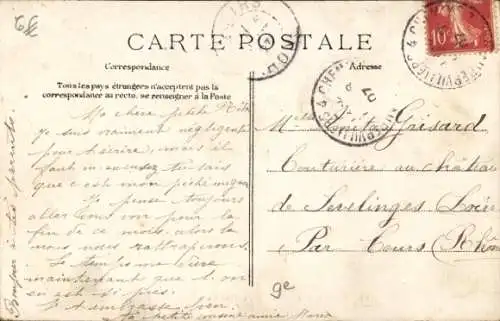 CARTE POSTALE
Correspondance
Adresse
Tous les pays étrangers n'acceptent pas la
correspondance au recto, se renseigner à la Poste
Ma chère petite
je suis vraiment négligente
pour t'écrire, mais il
faut m'excuser tu sais
que c'est mon péché mignon
Je pense toujours
aller vous voir pour la
fin de ce mois, alors là
nous nous rattraperons.
Le temps me dure
maintenant que l'on
en est si près.
Je t'embrasse bien
Ta petite cousine
Bonjour à tes parents
Grisard
Couturière au château
de Sevelinges (Loire)
Par Cours (Rhône)
10
9e